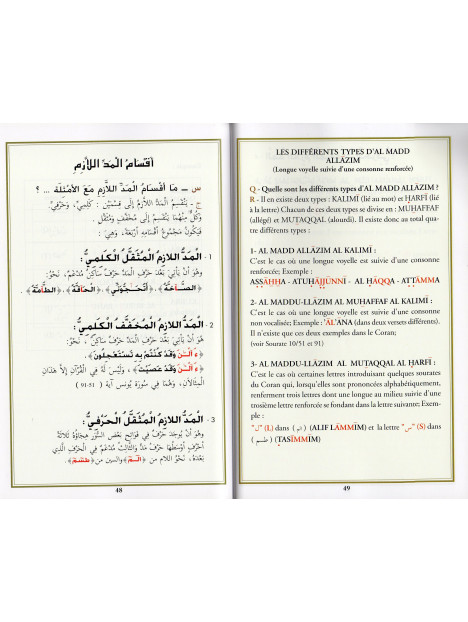 أقسام المد اللازم
س ــ ما أقسام المد اللازم مع الأمثلة ... ؟
ج ـ ينقسم المد اللازم إلى قسمين : كلمي، وحرفي
وكل منهما ينقسم إلى مخفف ومثقل،
فيكون مجموع أقسامه أربعة، وهي :
1 - المد اللازم المثقل الكلمي :
وهو أن يأتي بعد حرف المد ساكن مدغم، نحو:
﴿الصآخة﴾. ﴿أتحجوني﴾. ﴿الحآقة﴾. ﴿الطآمة﴾.
2 - المد اللازم المخفف الكلمي :
وهو أن يأتي بعد حرف المد حرف ساكن غير مدغم، نحو:
﴿ءآلٰن وقد كنتم به تستعجلون﴾
﴿ءآلٰن وقد عصيت﴾، وليس له في القرآن إلا هذان
المثالان، وهما في سورة يونس آية (51-91)
3 - المد اللازم المثقل الحرفي :
وهو أن يوجد حرف في فواتح بعض السور هجاؤه ثلاثة
أحرف أوسطها حرف مد والثالث مدغم في الحرف الذي
بعده، نحو: اللام من ﴿الم﴾ والسين من ﴿طسم﴾
48
LES DIFFÉRENTS TYPES D'AL MADD
ALLĀZIM
(Longue voyelle suivie d'une consonne renforcée)
Q - Quelle sont les différents types d'AL MADD ALLĀZIM ?
R - Il en existe deux types : KALIMĪ (lié au mot) et ḤARFĪ (lié
à la lettre) Chacun de ces deux types se divise en : MUHAFFAF
(allégé) et MUTAQQAL (alourdi). Il existe donc au total qua-
tre différents types :
1- AL MADD ALLĀZIM AL KALIMĪ :
C'est le cas où une longue voyelle est suivie d'une consonne
renforcée; Exemple :
ASṢĀḤḤA - ATUḤĀJJŪNNĪ - AL ḤĀQQA - AṬṬĀMMA
2- AL MADDU-LLĀZIM AL MUHAFFAF AL KALIMĪ :
C'est le cas où une longue voyelle est suivie d'une consonne
non vocalisée; Exemple : 'ĀL'ANA (dans deux versets différents).
Il n'existe que ces deux exemples dans le Coran;
(voir Sourate 10/51 et 91)
3- AL MADDU-LLĀZIM AL MUTAQQAL AL ḤARFĪ :
C'est le cas où certaines lettres introduisant quelques sourates
du Coran qui, lorsqu'elles sont prononcées alphabétiquement,
renferment trois lettres dont une longue au milieu suivie d'une
troisième lettre renforcée se fondant dans la lettre suivante; Exem-
ple :
"ل" (L) dans ( الم ) (ALIF LĀMMĪM) et la lettre "س" (S) dans
( طسم ) (TASĪMMĪM)
49